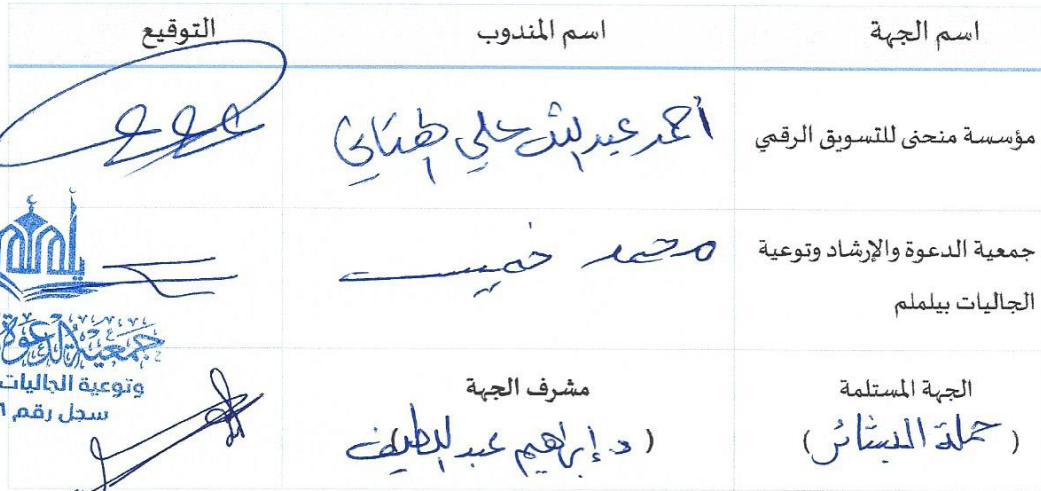 اسم الجهة اسم المندوب التوقيع
مؤسسة منحنى للتسويق الرقمي أحمد عبدالله علي
جمعية الدعوة والإرشاد وتوعية محمد خميس
الجاليات بيلملم
يلملم
جمعية الدعوة
وتوعية الجاليات
سجل رقم
الجهة المستلمة مشرف الجهة
(حملة البشائر) (د. إبراهيم عبد اللطيف)